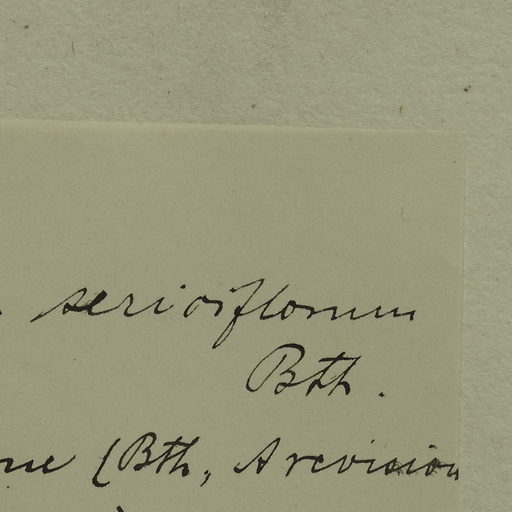 sericiflorum
Bth.
(Bth, A revision